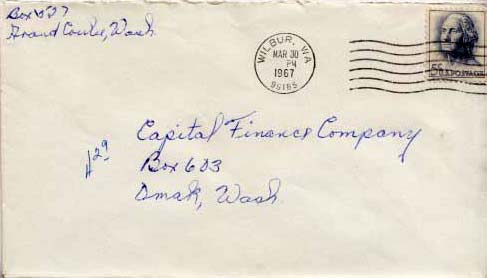 Box 627
Grand Coulee, Wash.
WILBUR, WA
MAR 30
PM
1967
99185
5¢ U.S. POSTAGE
Capital Finance Company
#29
Box 603
Omak, Wash.